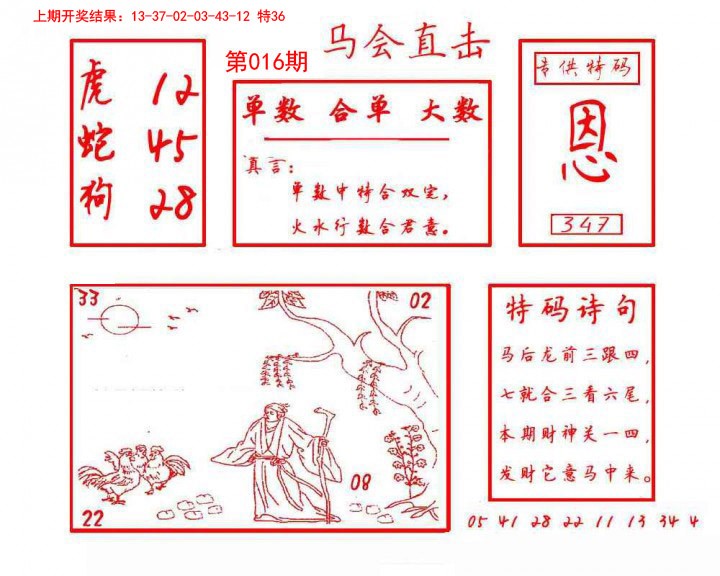 上期开奖结果：13-37-02-03-43-12 特36
马会直击
第016期
虎 12
蛇 45
狗 28
单数 合单 大数
真言：
单数中特合双定，
火水行数合君意。
专供特码
恩
347
33
02
08
22
特码诗句
马后龙前三跟四，
七就合三看六尾，
本期财神关一四，
发财它意马中来。
05 41 28 22 11 13 34 4